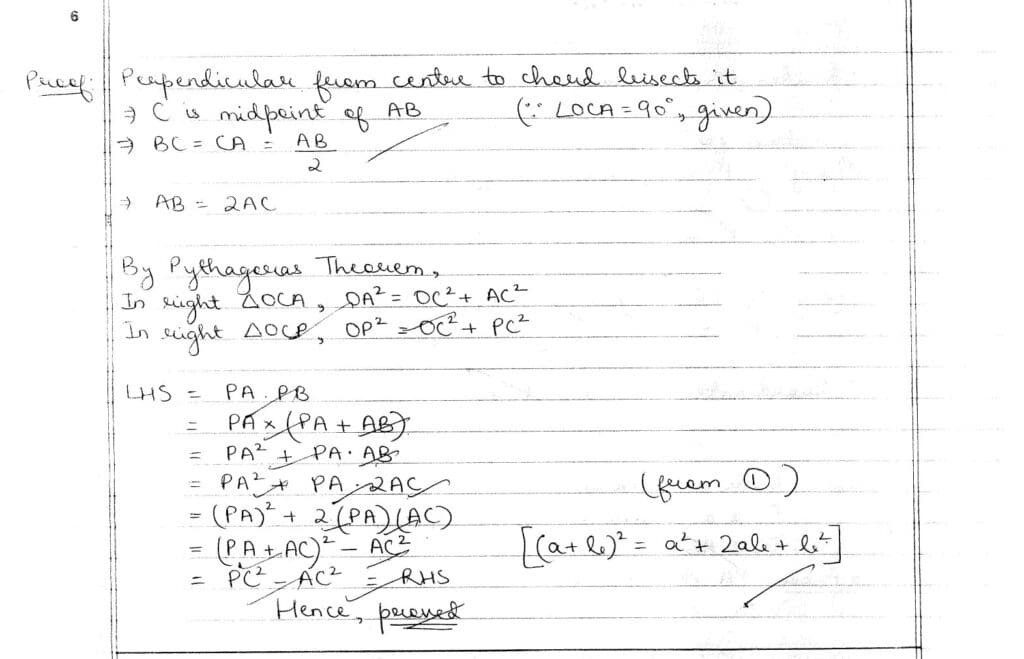 6
Proof: Perpendicular from centre to chord bisects it
⇒ C is midpoint of AB (∵ ∠OCA = 90°, given)
⇒ BC = CA = AB/2
⇒ AB = 2AC
By Pythagoras Theorem,
In right △OCA, OA² = OC² + AC²
In right △OCP, OP² = OC² + PC²
LHS = PA . PB
= PA × (PA + AB)
= PA² + PA . AB
= PA² + PA . 2AC (from ①)
= (PA)² + 2(PA)(AC)
= (PA + AC)² − AC² [(a+b)² = a² + 2ab + b²]
= PC² − AC² = RHS
Hence, proved